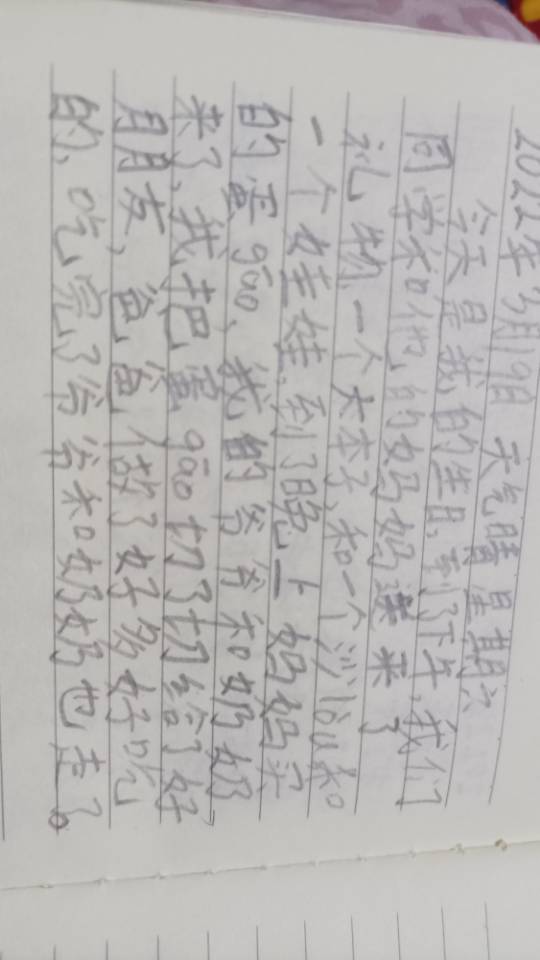 2022年3月19日 天气晴 星期六
今天是我的生日,到了下午,我们
同学和他的妈妈送来了
礼物,一个大本子,和一个沙lou和
一个娃娃.到了晚上妈妈买
的蛋gāo,我的爷爷和奶奶
来了,我把蛋gāo切了切给了好
朋友,爸爸做了好多好吃
的,吃完了爷爷和奶奶也走了。